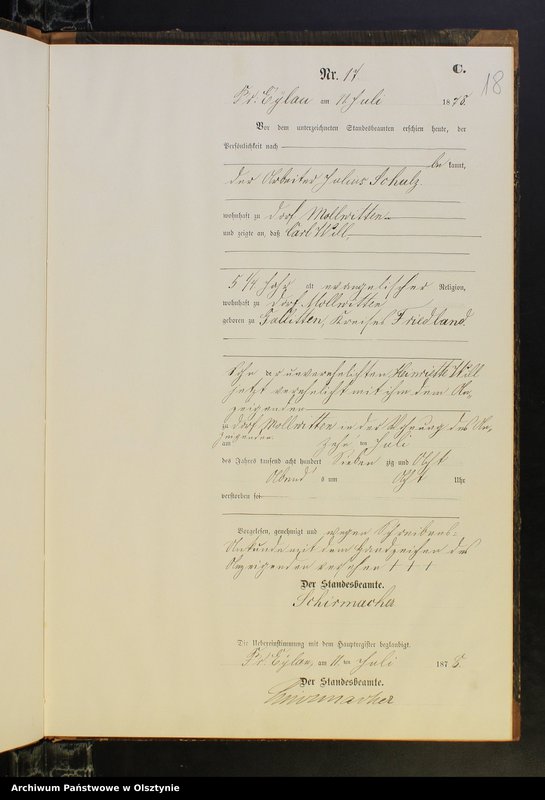 C.
18
Nr. 17
Pr. Eylau am 11 Juli 1878.
Vor dem unterzeichneten Standesbeamten erschien heute, der
Persönlichkeit nach
be kannt,
der Arbeiter Julius Schulz
wohnhaft zu Dorf Mollwitten
und zeigte an, daß Carl Will
5 1/4 Jahr alt evangelischer Religion,
wohnhaft zu Dorf Mollwitten
geboren zu Gallitten, Kreises Friedland
Sohn der unverehelichten Henriette Will
jetzt verehelicht mit ihm dem An-
zeigenden
zu Dorf Mollwitten in der Wohnung des An-
zeigenden
am zehn ten Juli
des Jahres tausend acht hundert Sieben zig und Acht
Abend s um Acht Uhr
verstorben sei
Vorgelesen, genehmigt und wegen Schreibens-
Unkunde mit dem Handzeichen des
Anzeigenden versehen + + +
Der Standesbeamte.
Schirmacher
Die Uebereinstimmung mit dem Hauptregister beglaubigt.
Pr. Eylau, am 11 ten Juli 1878.
Der Standesbeamte.
Schirmacher
Archiwum Państwowe w Olsztynie